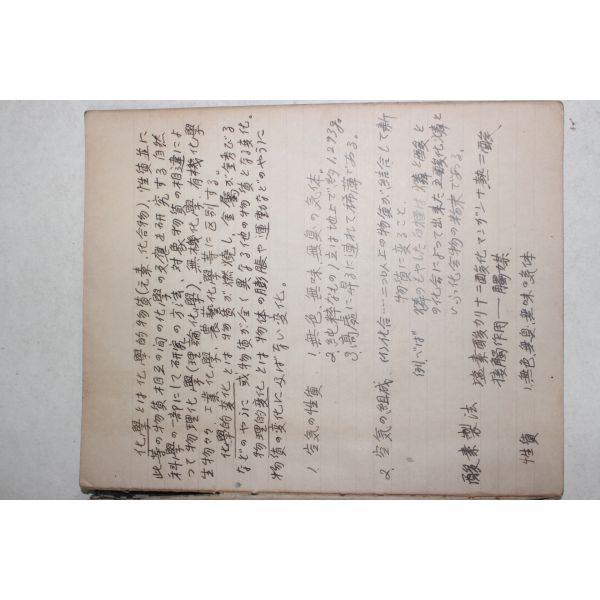 化學とは化學的物質(元素、化合物)、性質並に
此等の物質相互の間の化學的反應を研究する自然
科學の一部にして研究の方法、対象物質の相違によ
つて物理化學(理論化學)、無機化學、有機化學
生物化學、工業化學、農藝化學等に区別する。
化學的変化とは物質が燃焼し、金属が錆びる
などのやうに或物質が全く異なる他の物質となる変化。
物理的変化とは物体の膨脹や運動などのやうに
物質の変化に及ばない変化。
1. 空気の性質 1. 無色、無味、無臭の気体。
2. 純粋なもの1立は地上で約1.293g。
3. 高處に昇るに連れて稀薄である。
2. 空気の組成 (イ)化合…二つ以上の物質が結合して新
物質に変ること。
例へば 燐のもやした白煙は燐と酸素と
の化合によつて出来た五酸化燐と
いふ化合物の粉末である。
酸素製法 塩素酸カリ+二酸化マンガン+熱=酸
接觸作用——觸媒
性質 1. 無色、無臭、無味の気体